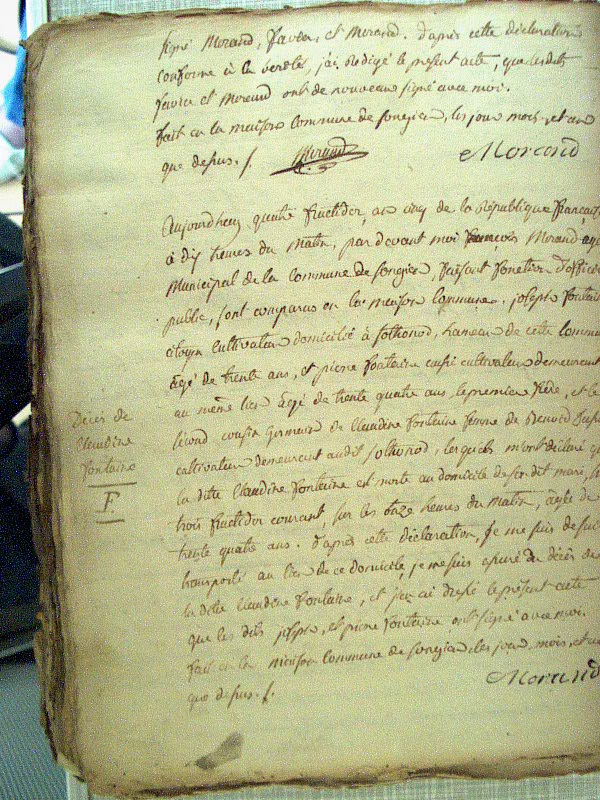 signé Morand, favier, et Morand. d'après cette déclaration
conforme à la verité, j'ai rédigé le présent acte, que les dits
favier et Morand ont de nouveau signé avec moi.
fait en la maison Commune de songieu, les jour mois, et an
que depus. /. Morand Morand
Aujourdhuy quatre fructidor, an cinq de la République français
à dix heures du matin, par devant moi francois Morand
Municipal de la Commune de songieu, faisant fonction d'officier
public, sont comparus en la maison Commune. joseph fontaine
citoyen cultivateur domicilié à sothonod, hameau de cette commune
âgé de trente ans, et pierre fontaine aussi cultivateur demeurant
au même lieu âgé de trente quatre ans, le premier frère, et le
second cousin germain de Claudine fontaine femme de Benoit
cultivateur demeurant audit sothonod, lesquels m'ont déclaré que
la dite Claudine fontaine est morte au domicile de son dit mari, le
trois fructidor courant, sur les onze heures du matin, âgée de
trente quatre ans. d'après cette déclaration, je me suis de suite
transporté au lieu de ce domicile, je me suis assuré du décès de
la dite Claudine fontaine, et j'en ai dressé le présent acte
que les dits joseph, et pierre fontaine ont signé avec moi.
fait en la maison Commune de songieu, les jour, mois, et an
que depus. /. Morand
Décès de
Claudine
fontaine
F.